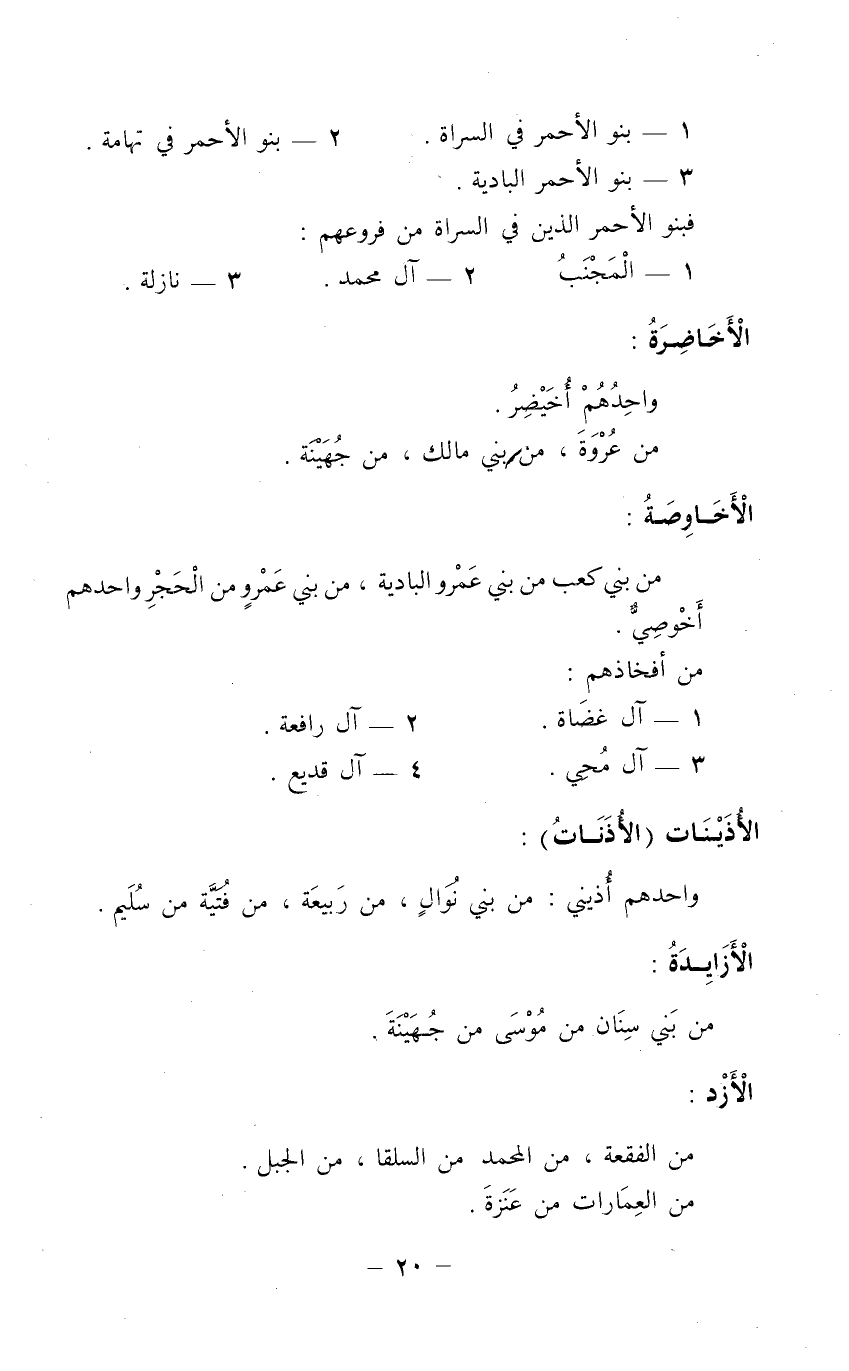 ١ — بنو الأحمر في السراة . ٢ — بنو الأحمر في تهامة .
٣ — بنو الأحمر البادية .
فبنو الأحمر الذين في السراة من فروعهم :
١ — الْمَجْنَبُ ٢ — آل محمد . ٣ — نازلة .
الْأَخَاضِرَةُ :
واحِدُهُمْ أُخَيْضِرُ .
من عُرْوَةَ ، من بني مالك ، من جُهَيْنَة .
الْأَخَاوِصَةُ :
من بني كعب من بني عَمْرو البادية ، من بني عَمْرٍو من الْحَجْرِ واحدهم
أَخْوصِيٌّ .
من أفخاذهم :
١ — آل غضَاة . ٢ — آل رافعة .
٣ — آل مُحِي . ٤ — آل قديع .
الأُذَيْنَات (الأُذَنَاتُ) :
واحدهم أُذيني : من بني نُوَالٍ ، من رَبيعَة ، من فُتَيَّة من سُلَيم .
الْأَزَايِدَةُ :
من بَني سِنَان من مُوْسَى من جُهَيْنَةَ .
الْأَزْد :
من الفقعة ، من المحمد من السلقا ، من الجبل .
من العِمَارات من عَنَزةَ .
— ٢٠ —